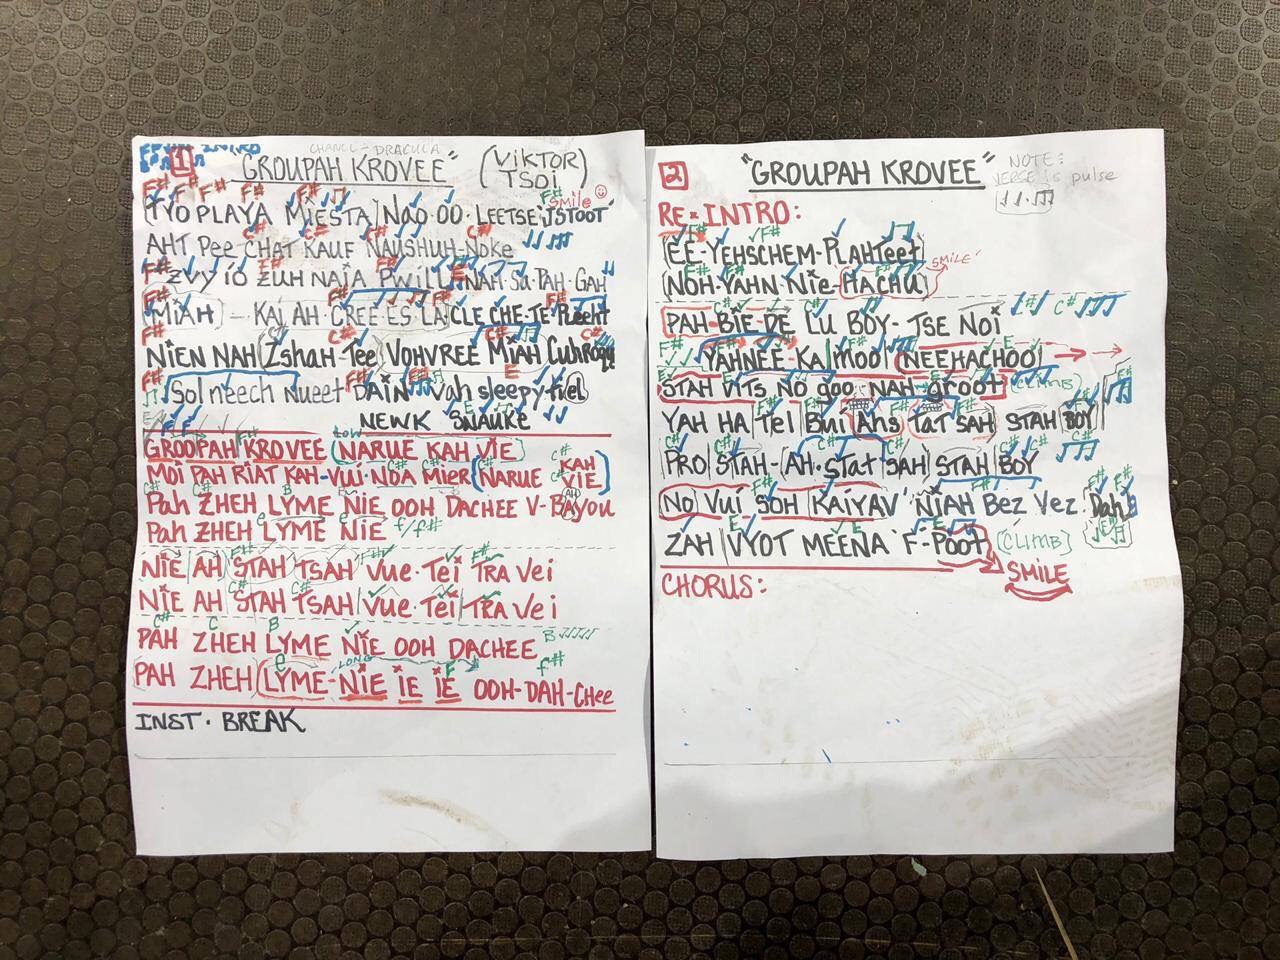 1
CHANEL - DRACULA
"GROUPAH KROVEE" (VIKTOR TSOI
F# F# F# F# F# F# Smile
TYO PLAYA MIESTA NAO·OO·LEETSE'JSTOOT
C# C# C#
AHT Pee-CHAT KAUF NAUSHUH-Noke
F# E F# E
ZVY IO ZUH NAIA PWILL NAH-Su-PAH-GAH
F# F# F#
(MIAH) - KAI AH CREE ES LA CLE CHE-TE PLecht
F# C# C#
NIEN NAH (Zshah Tee) (VOHVREE MIAH Cuhroqu
F# F# F# E
Sol neech nueet DAIN Vah sleepy tiel
NEWK SNAUKE
GROOPAH KROVEE (NARUE KAH VIE)
MOI PAH RIAT KAH-VUI-NOA MIER (NARUE KAH VIE)
Pah ZHEH LYME NIE OOH DACHEE V-BAYOU
Pah ZHEH LYME NIE f/f#
NIE AH STAH TSAH VUE·TEI TRA Vei
NIE AH STAH TSAH VUE·TEI TRA Vei
C# C B
PAH ZHEH LYME NIE OOH DACHEE B
e LONG F# f#
PAH ZHEH (LYME-NIE IE IE OOH-DAH-CHee
INST· BREAK
2
"GROUPAH KROVEE" NOTE: VERSE is pulse
RE-INTRO:
F#
EE-YEHSCHEM-PLAHTeet
F# F# F# F# SMILE
(NOH-YAHN-NIE-HACHU)
PAH-BIE-DE LU BOY-TSE NOI
F#
YAHNEE-KA MOO (NEEHACHOO) → →
STAH VITS NO goo NAH-groot (CLIMB)
YAH HA TEL BUI Ans TAT SAH STAH BOY
C# C# C# C#
PRO STAH-(AH·STAT SAH) STAH BOY
F# F# F#
NO VUI SOH KAIYAV' NIAH BEZ VEZ Dah
E E E
ZAH VYOT MEENA 'F-POOT (CLIMB)
SMILE
CHORUS: